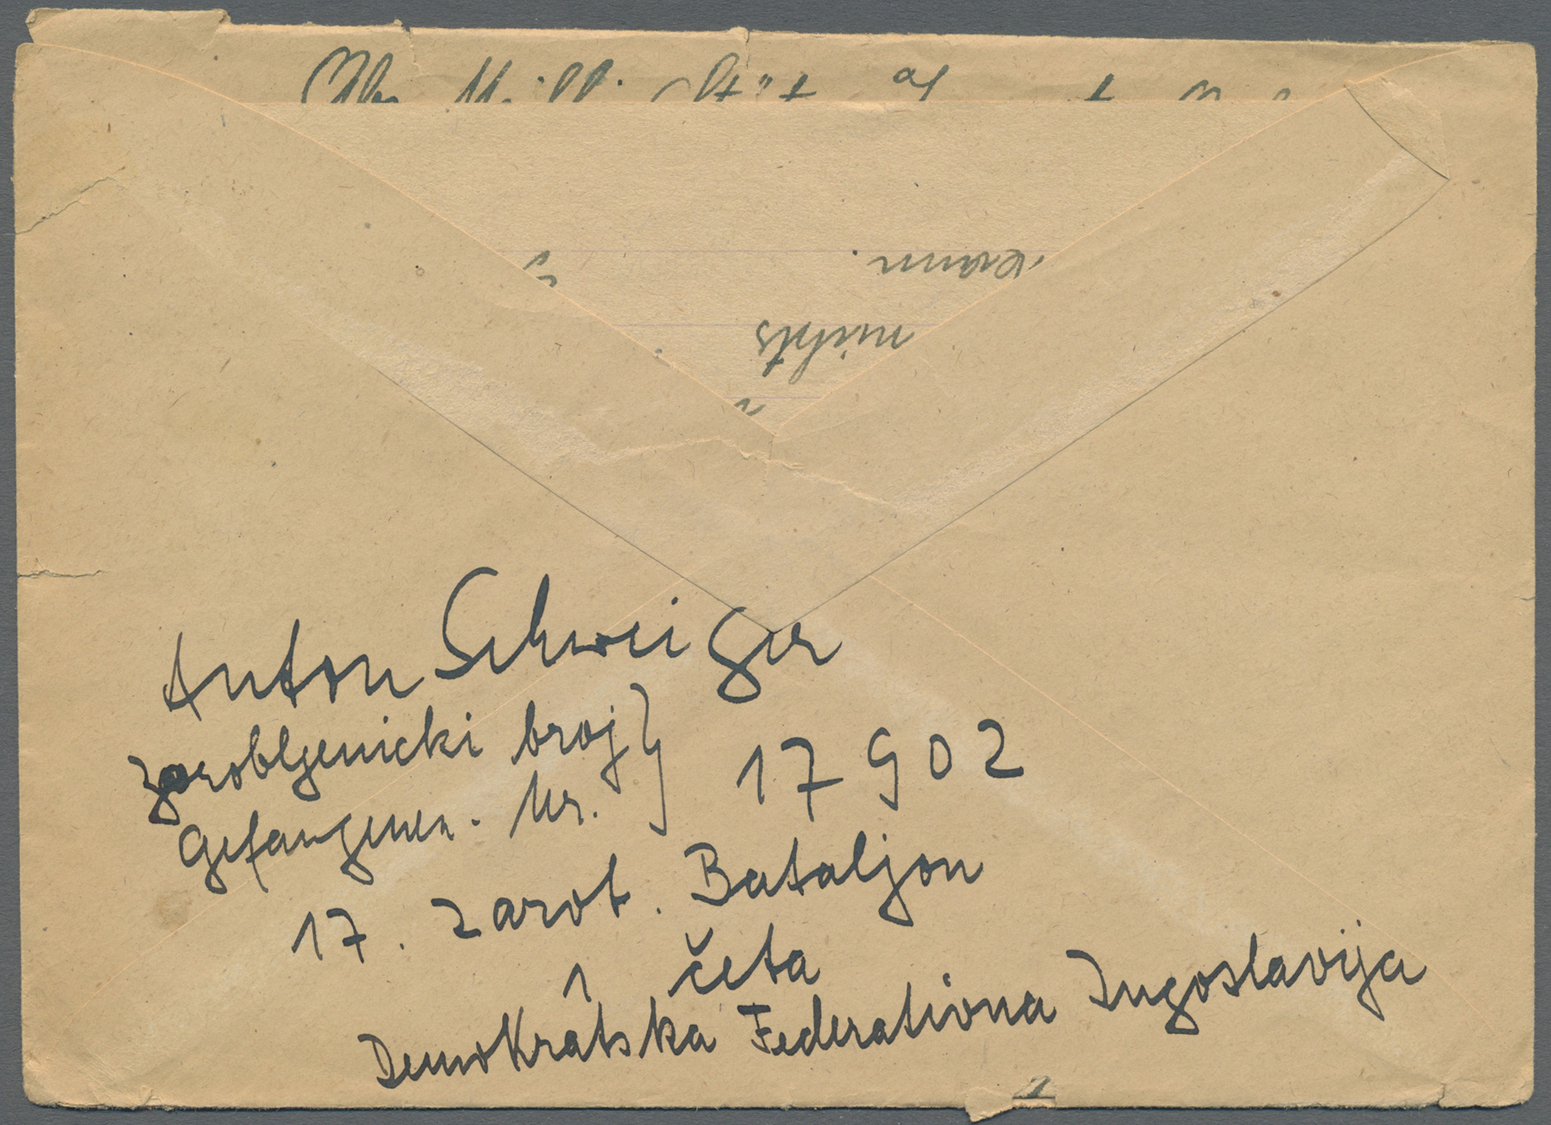 kann.
nichts
Anton Schweiger
zarobljenicki broj }
Gefangenen. Nr. } 17902
17. zarob. Bataljon
1 četa
Demokratska Federativna Jugoslavija